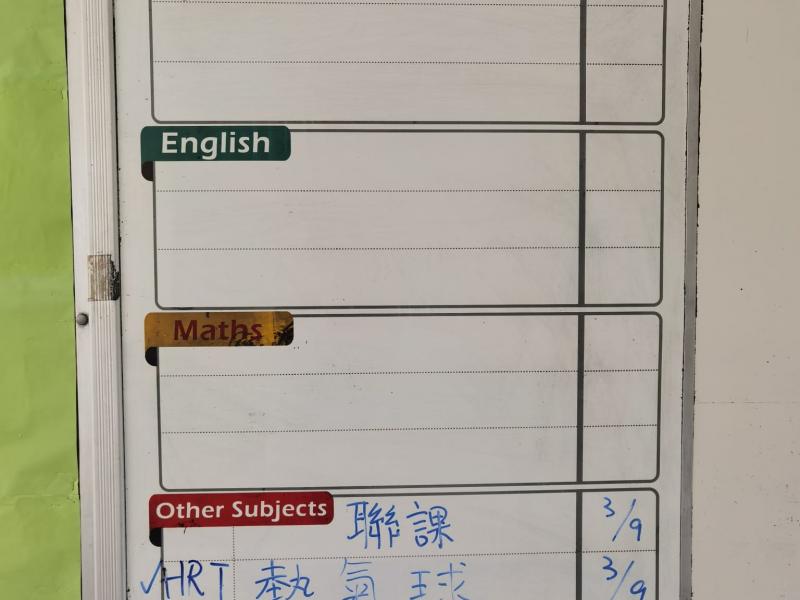 English
Maths
Other Subjects 聯課 3/9
✓HRT 熱氣球 3/9